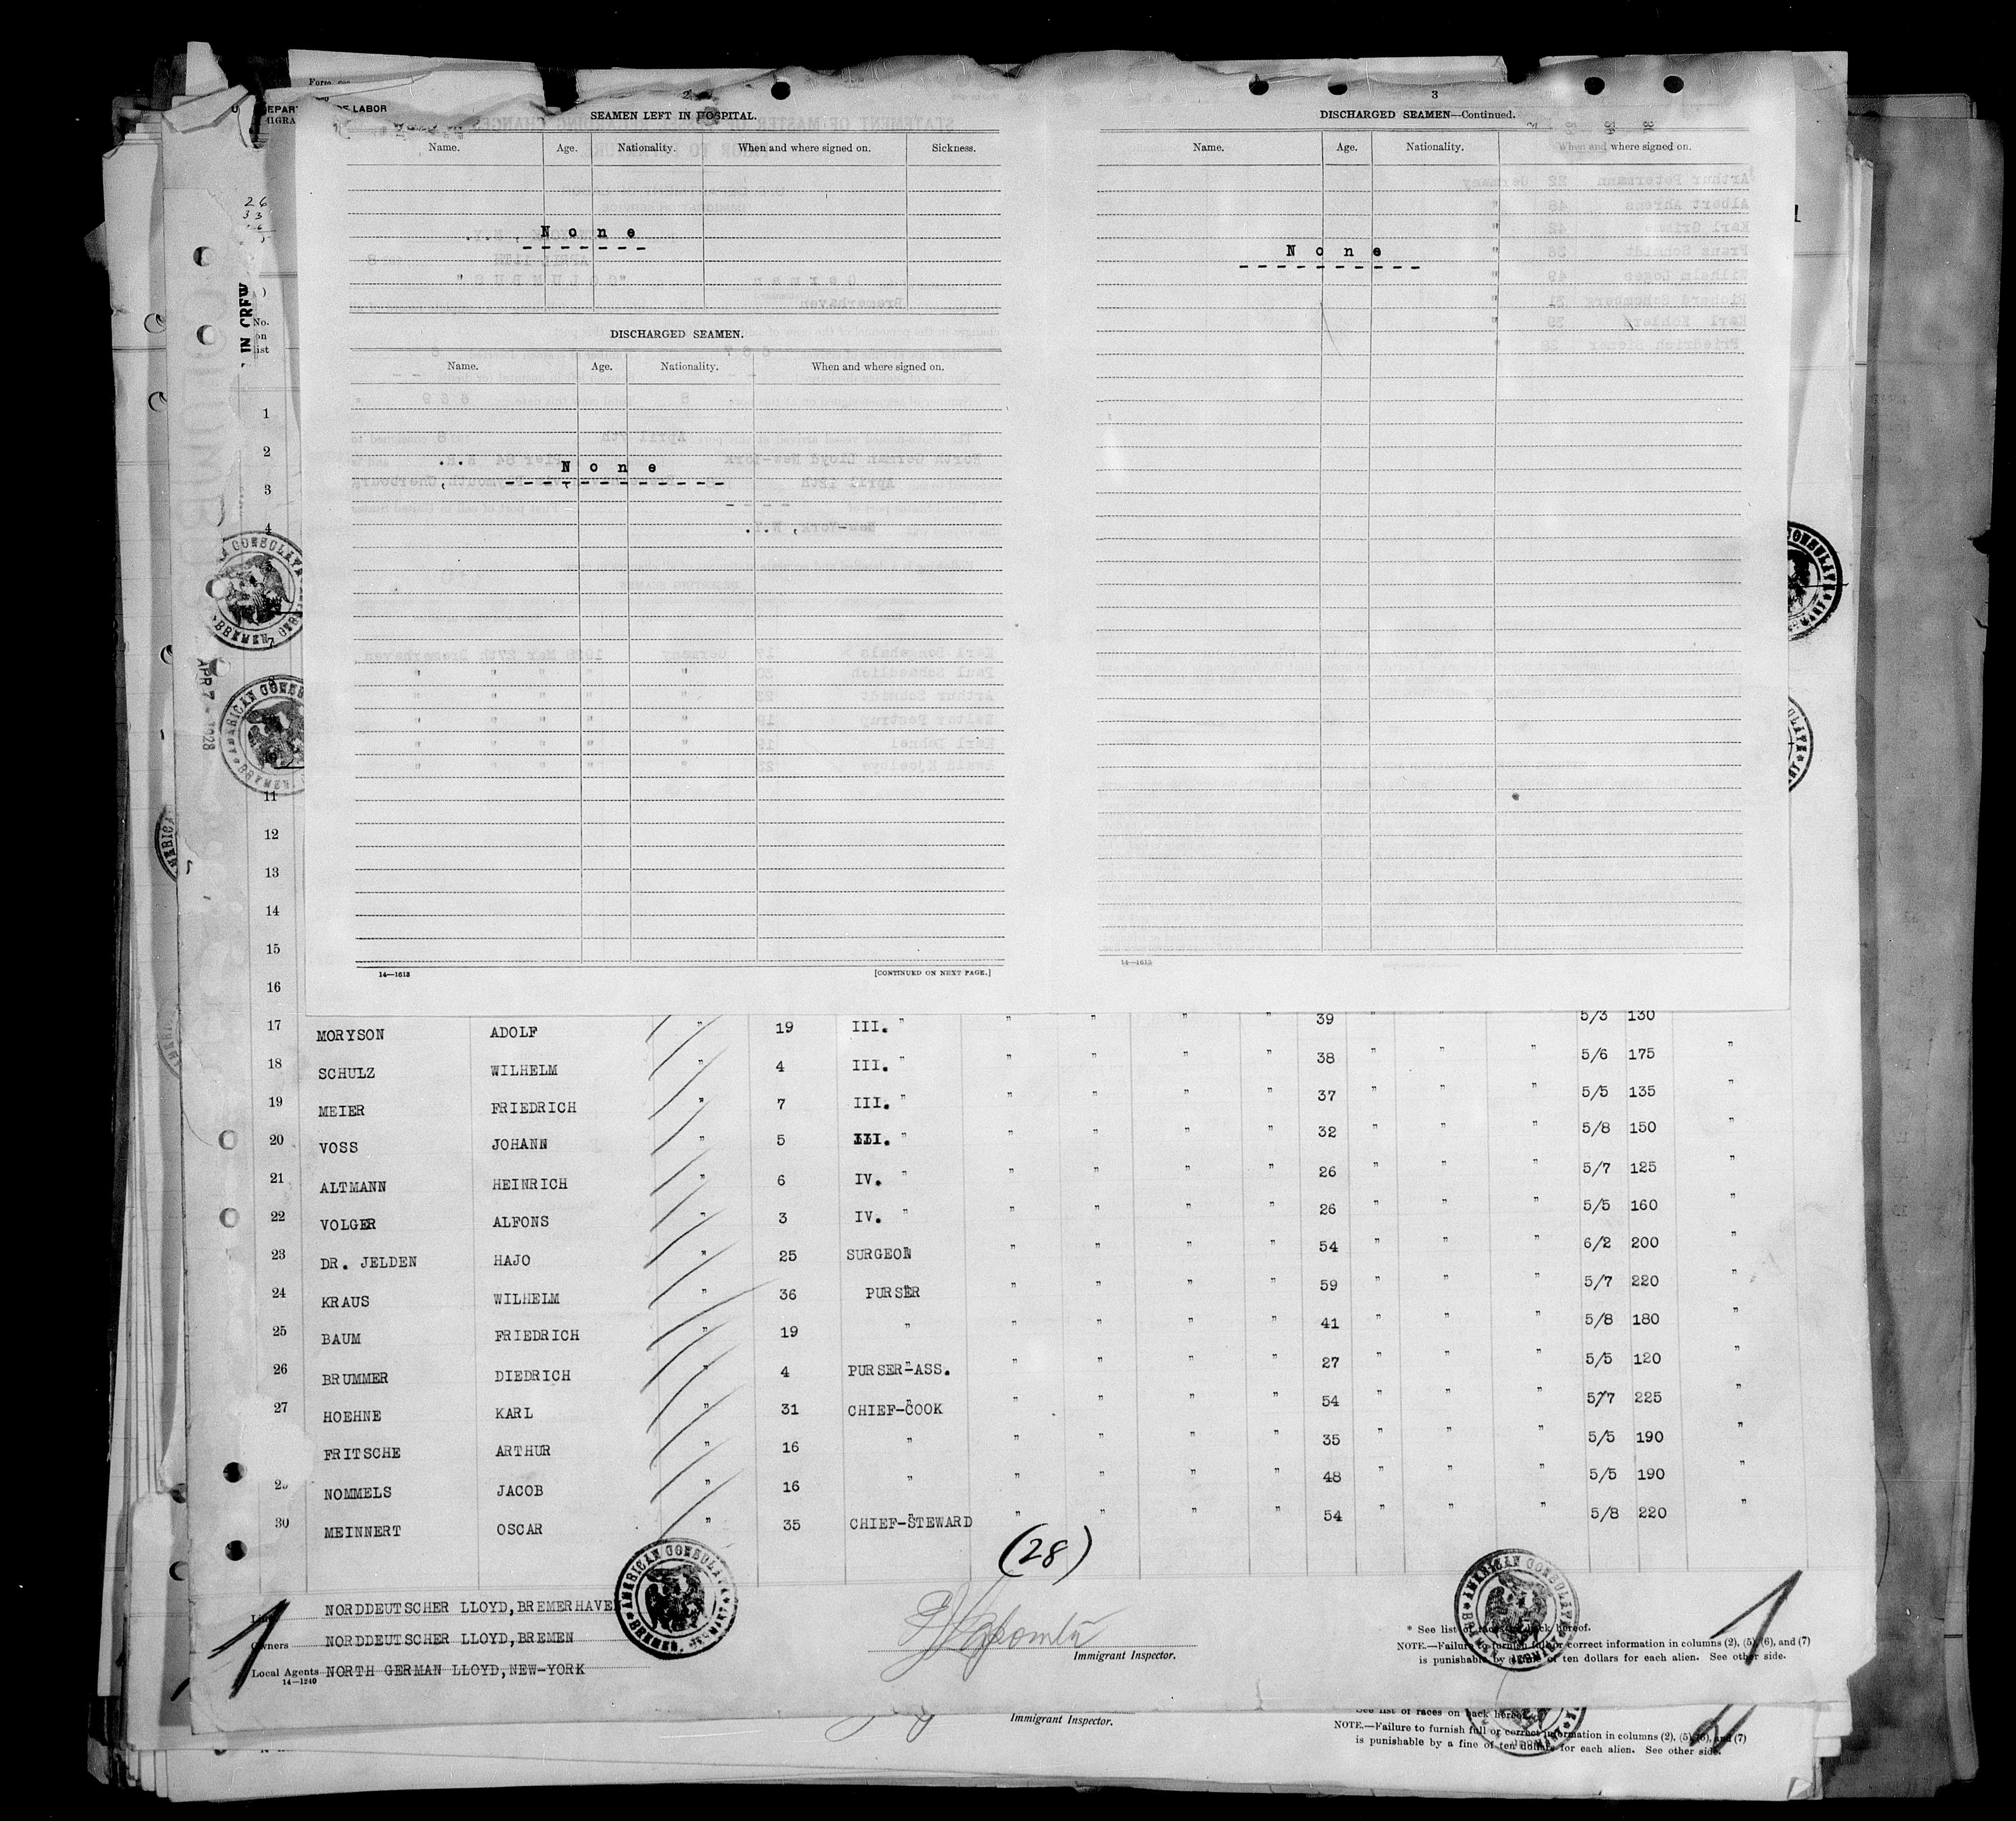 Form
U. DEPART OF LABOR
IGRA
2
SEAMEN LEFT IN HOSPITAL.
Name. Age. Nationality. When and where signed on. Sickness.
None
DISCHARGED SEAMEN.
Name. Age. Nationality. When and where signed on.
None
14—1613 [CONTINUED ON NEXT PAGE.]
3
DISCHARGED SEAMEN—Continued.
Name. Age. Nationality. When and where signed on.
None
14—1613
IN CREW
No. on list
1
2
3
4
11
12
13
14
15
16
APR 7 - 1928
17 MORYSON ADOLF " 19 III. " " " " " 39 " " " 5/3 130 "
18 SCHULZ WILHELM " 4 III. " " " " " 38 " " " 5/6 175 "
19 MEIER FRIEDRICH " 7 III. " " " " " 37 " " " 5/5 135 "
20 VOSS JOHANN " 5 III. " " " " " 32 " " " 5/8 150 "
21 ALTMANN HEINRICH " 6 IV. " " " " " 26 " " " 5/7 125 "
22 VOLGER ALFONS " 3 IV. " " " " " 26 " " " 5/5 160 "
23 DR. JELDEN HAJO " 25 SURGEON " " " " 54 " " " 6/2 200 "
24 KRAUS WILHELM " 36 PURSER " " " " 59 " " " 5/7 220 "
25 BAUM FRIEDRICH " 19 " " " " " 41 " " " 5/8 180 "
26 BRUMMER DIEDRICH " 4 PURSER-ASS. " " " " 27 " " " 5/5 120 "
27 HOEHNE KARL " 31 CHIEF-COOK " " " " 54 " " " 5/7 225 "
FRITSCHE ARTHUR " 16 " " " " " 35 " " " 5/5 190 "
29 NOMMELS JACOB " 16 " " " " " 48 " " " 5/5 190 "
30 MEINNERT OSCAR " 35 CHIEF-STEWARD " " " " 54 " " " 5/8 220 "
(28)
AMERICAN CONSULATE BREMEN, GERMANY
NORDDEUTSCHER LLOYD, BREMERHAVE
Owners NORDDEUTSCHER LLOYD, BREMEN
Local Agents NORTH GERMAN LLOYD, NEW-YORK
14—1240
1
Immigrant Inspector.
* See list of races on back hereof.
NOTE.—Failure to furnish full or correct information in columns (2), (5), (6), and (7)
is punishable by a fine of ten dollars for each alien. See other side.
1
Immigrant Inspector.
See list of races on back hereof.
NOTE.—Failure to furnish full or correct information in columns (2), (5), (6), and (7)
is punishable by a fine of ten dollars for each alien. See other side.